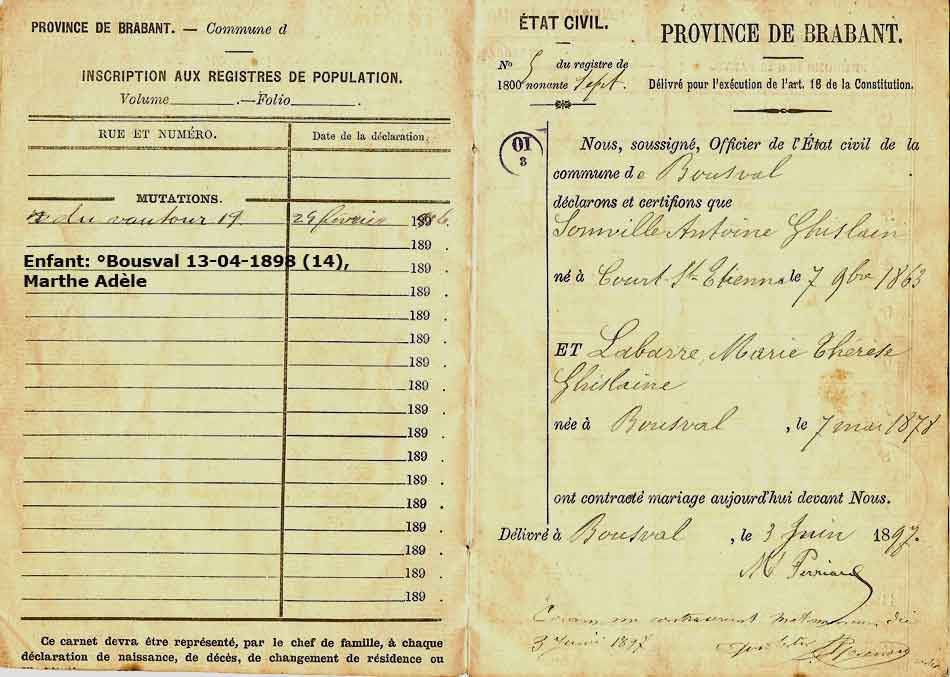 PROVINCE DE BRABANT. — Commune d
INSCRIPTION AUX REGISTRES DE POPULATION.
Volume ______ .—Folio ______ .
RUE ET NUMÉRO. Date de la déclaration.
MUTATIONS.
du vautour 19. 29 février 1896.
189 .
Enfant: °Bousval 13-04-1898 (14),
189 .
Marthe Adèle
189 .
189 .
189 .
189 .
189 .
189 .
189 .
189 .
189 .
189 .
189 .
189 .
189 .
189 .
Ce carnet devra être représenté, par le chef de famille, à chaque
déclaration de naissance, de décès, de changement de résidence ou
ÉTAT CIVIL.
No 5 du registre de
1800 nonante Sept.
PROVINCE DE BRABANT.
Délivré pour l'exécution de l'art. 16 de la Constitution.
OI
8
Nous, soussigné, Officier de l'État civil de la
commune de Bousval
déclarons et certifions que
Sonville Antoine Ghislain
né à Court-St-Etienne le 7 9bre 1863
ET Labarre, Marie Thérèse
Ghislaine
née à Bousval , le 7 mai 1878
ont contracté mariage aujourd'hui devant Nous.
Délivré à Bousval , le 3 Juin 1897.
Coram me contraxerunt matrimonium die
3 Junii 1897